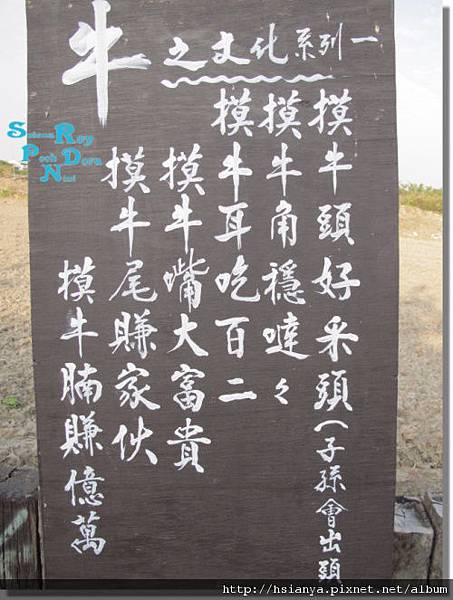 牛之文化系列一
摸牛頭好采頭(子孫會出頭
摸牛角穩噠々
摸牛耳吃百二
摸牛嘴大富貴
摸牛尾賺家伙
摸牛腩賺億萬
Roy
Pooh Dora
Nini
http://hsianya.pixnet.net/album